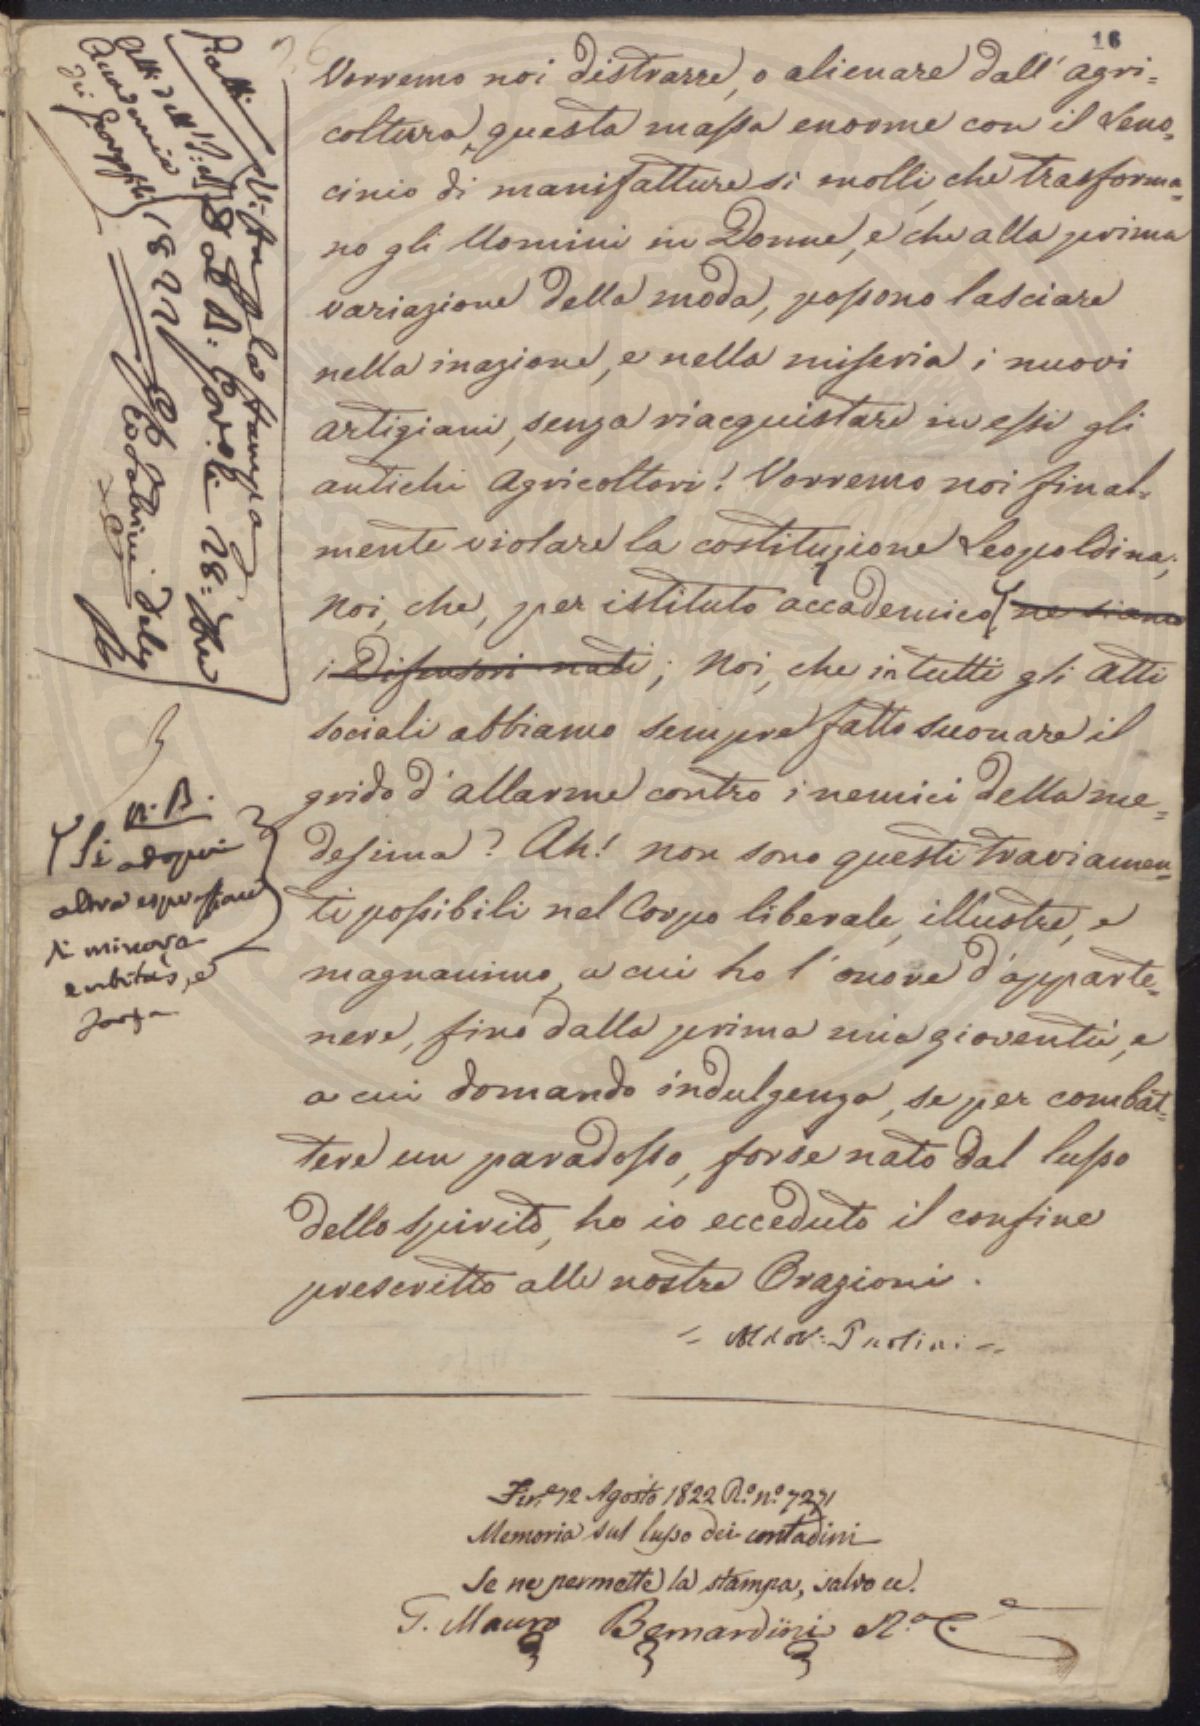 16
Vorremo noi distrarre, o alienare dall' agri=
coltura, questa massa enorme con il Leno=
cinio di manifatture sì molli, che trasforma=
no gli Uomini in Donne, e che alla prima
variazione della moda, possono lasciare
nella inazione, e nella miseria i nuovi
artigiani, senza riacquistare in essi gli
antichi Agricoltori! Vorremo noi final=
mente violare la costituzione Leopoldina;
Noi, che, per istituto accademico ne siamo
i Difensori nati; Noi, che in tutti gli Atti
sociali abbiamo sempre fatto suonare il
grido d'allarme contro i nemici della me=
desima? Ah! non sono questi traviamen=
ti possibili nel Corpo liberale, illustre, e
magnanimo, a cui ho l'onore d'apparte=
nere, fino dalla prima mia gioventù, e
a cui domando indulgenza, se per combat=
tere un paradosso, forse nato dal lusso
dello spirito, ho io ecceduto il confine
prescritto alle nostre Orazioni.
= Aldov: Paolini =
N.B.
Si adopri
altra espressione
di minore
entità, e
forza
Visto per la stampa
Atti dell'
Accademia
dei Georgofili
1822
12 Agosto 1822 R.º n.º 7271
Memoria sul lusso dei contadini
Se ne permette la stampa, salvo ec.
F. Mauro Bernardini R.º C.º